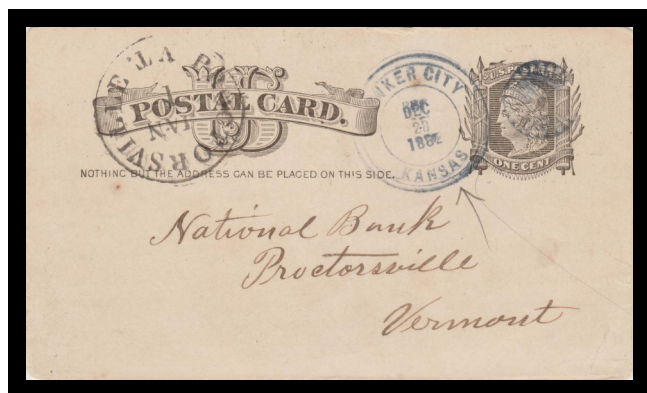 POSTAL CARD.
NOTHING BUT THE ADDRESS CAN BE PLACED ON THIS SIDE.
CITY
DEC
28
188
KANSAS
U.S. POSTAGE
ONE CENT
JAN
1
National Bank
Proctorsville
Vermont